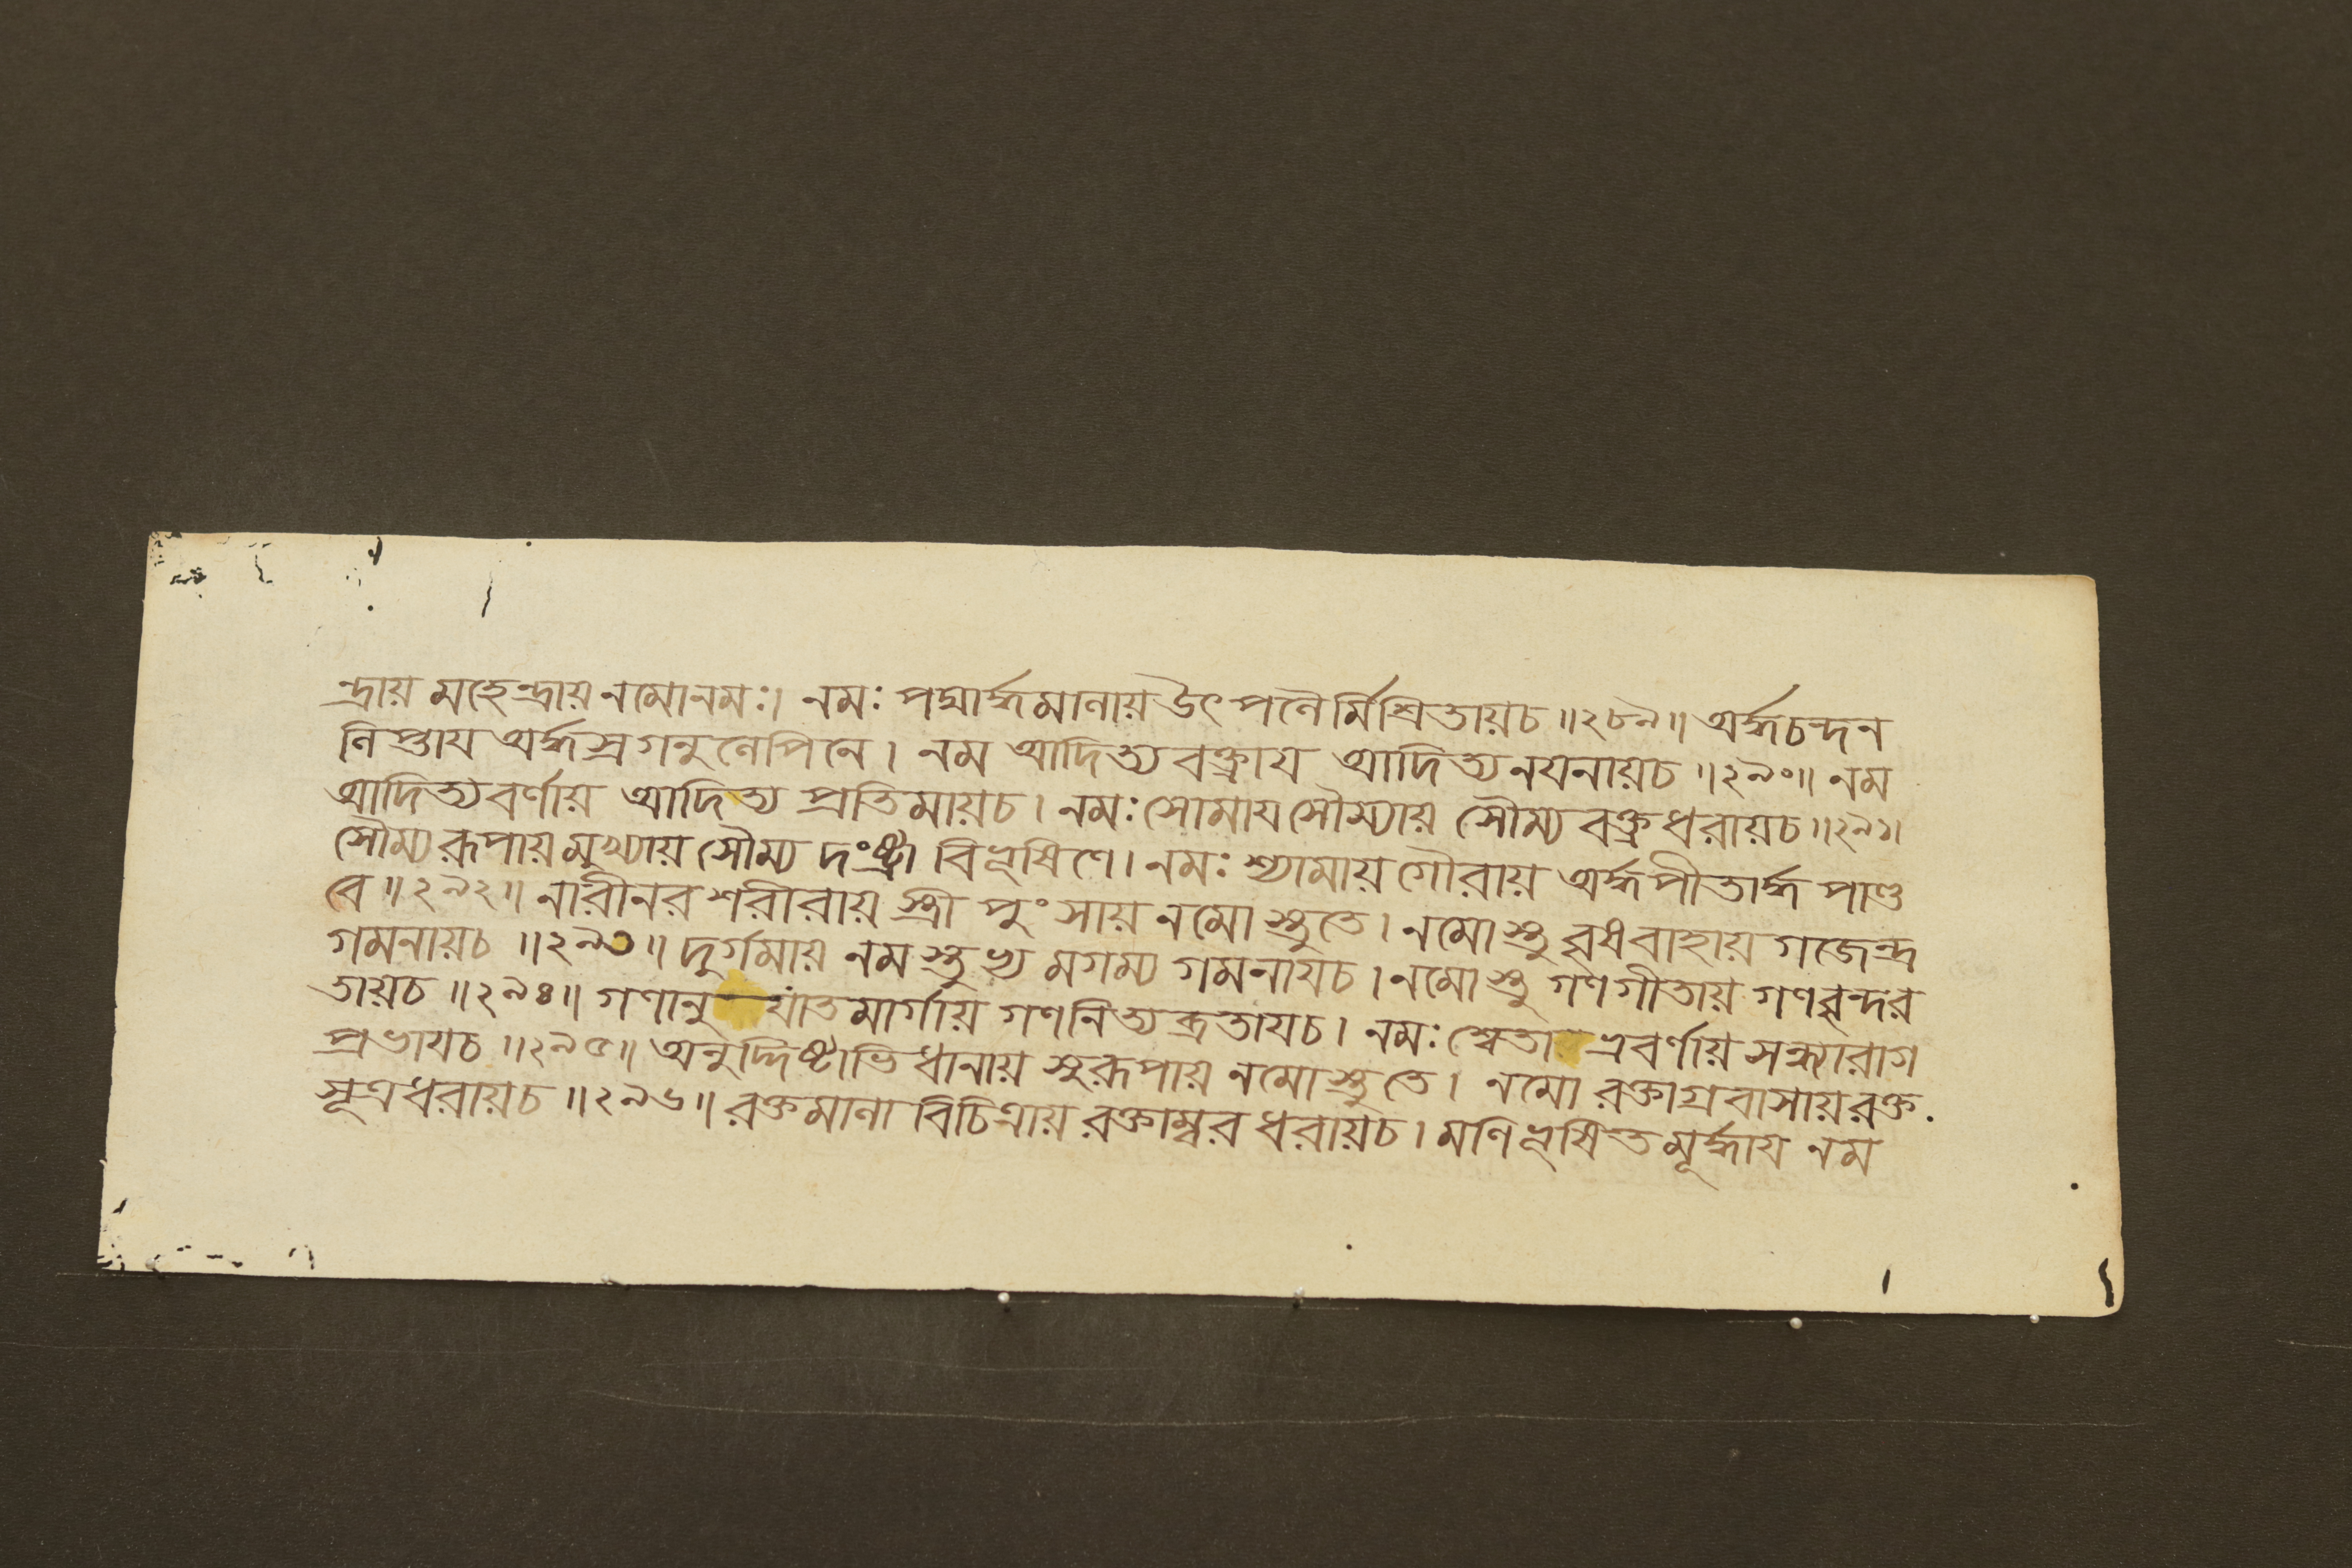 ন্দ্রায় মহেন্দ্রায় নমোনমঃ। নমঃ পদ্মার্দ্ধমালায় উৎপলৈর্মিশ্রিতায়চ ॥২৮৯॥ অর্দ্ধচন্দন
লিপ্তায অর্দ্ধস্রগনুলেপিনে। নম আদিত্যবক্ত্রায আদিত্যনযনায়চ ॥২৯০॥ নম
আদিত্যবর্ণায় আদিত্য প্রতিমায়চ। নমঃ সোমায সৌম্যায় সৌম্য বক্ত্রধরায়চ ॥২৯১॥
সৌম্যরূপায় মুখ্যায় সৌম্য দংষ্ট্রা বিভূষিণে। নমঃ শ্যামায় গৌরায় অর্দ্ধপীতার্দ্ধ পাণ্ড
বে ॥২৯২॥ নারীনর শরীরায় স্ত্রী পুংসায় নমোস্তুতে। নমোস্তু বৃষবাহায় গজেন্দ্র
গমনায়চ ॥২৯৩॥ দুর্গমায় নমস্তুভ্য মগম্য গমনাযচ। নমোস্তু গণগীতায় গণবৃন্দর
তায়চ ॥২৯৪॥ গণানু যাতমার্গায় গণনিত্যব্রতাযচ। নমঃ শ্বেতা ভ্রবর্ণায় সন্ধ্যারাগ
প্রভাযচ ॥২৯৫॥ অনুদ্দিষ্টাভিধানায় সুরূপায় নমোস্তুতে। নমো রক্তাগ্রবাসায় রক্ত
সূত্রধরায়চ ॥২৯৬॥ রক্তমালা বিচিত্রায় রক্তাম্বরধরায়চ। মণিভূষিতমূর্দ্ধায নম